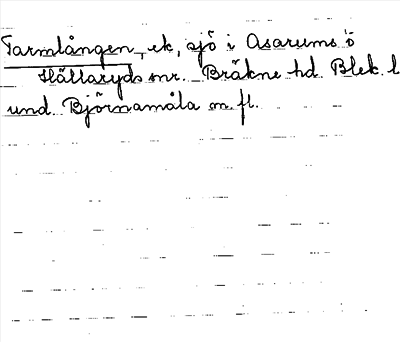 Tarmlången, ek, sjö i Asarums o
Hällaryds snr. Bräkne hd Blek. l
und. Björnamåla m. fl.